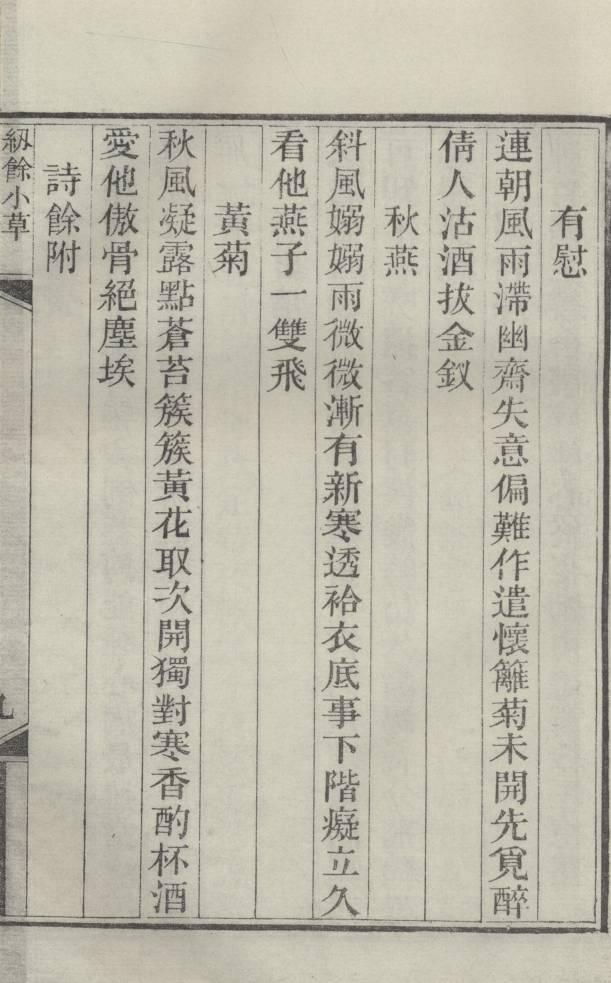 有慰
連朝風雨滯幽齋失意偏難作遣懷籬菊未開先覓醉
倩人沽酒拔金釵
秋燕
斜風嫋嫋雨微微漸有新寒透袷衣底事下階癡立久
看他燕子一雙飛
黃菊
秋風凝露點蒼苔簇簇黃花取次開獨對寒香酌杯酒
愛他傲骨絕塵埃
詩餘附
紉餘小草